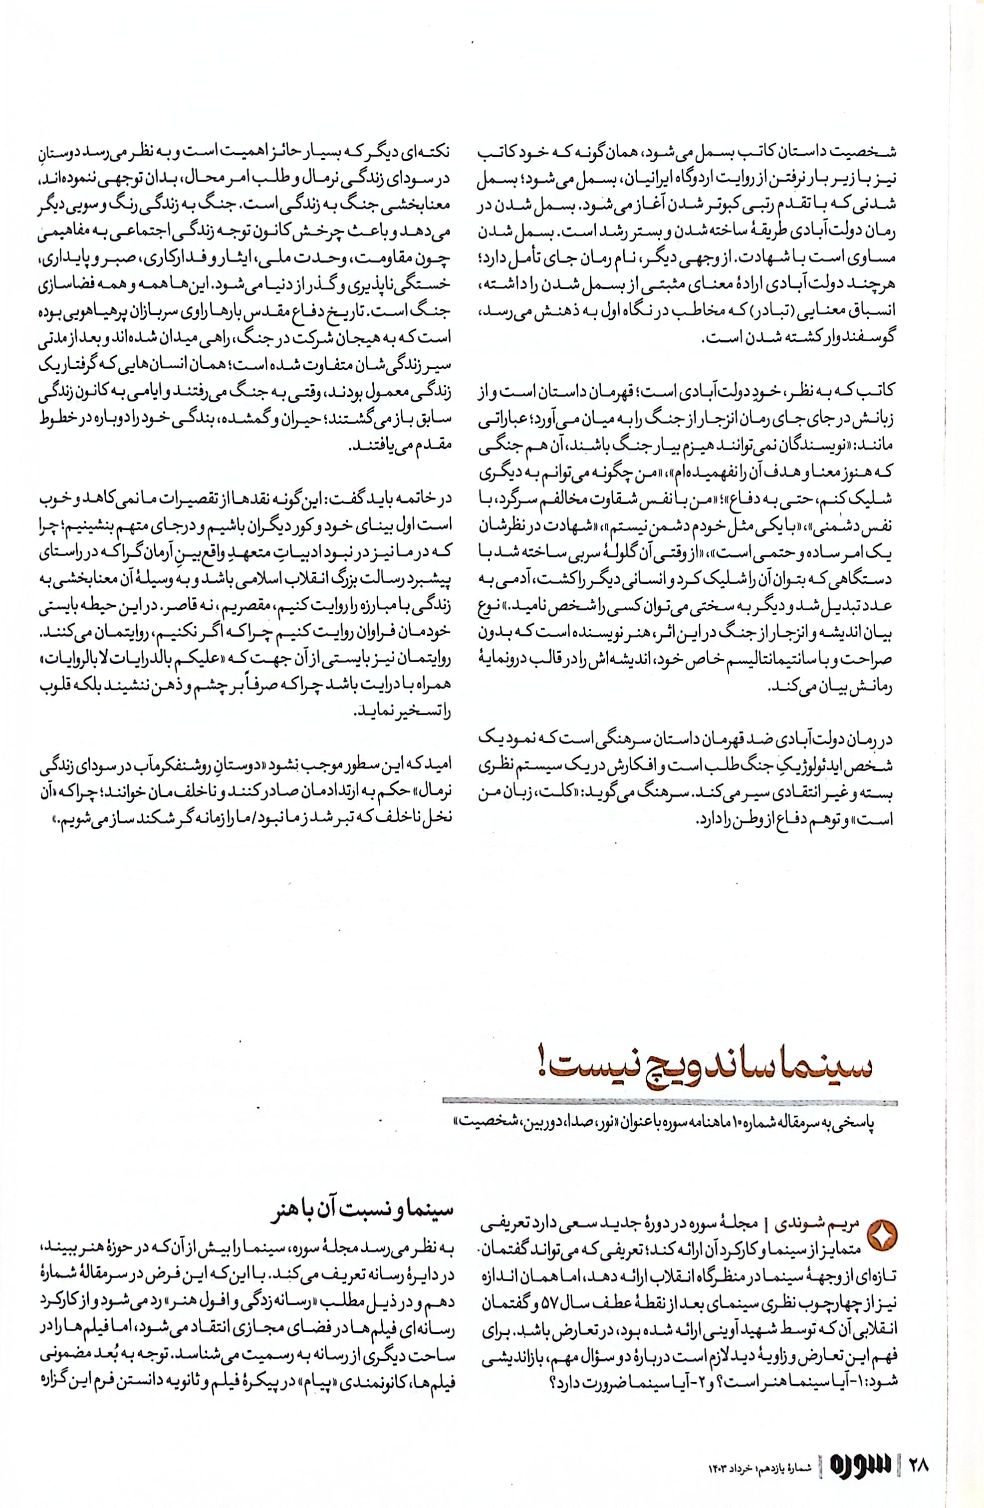 شخصیت داستان کاتب بسمل می‌شود، همان‌گونه که خود کاتب
نیز با زیر بار نرفتن از روایت اردوگاه ایرانیان، بسمل می‌شود؛ بسمل
شدنی که با تقدم رتبی کبوتر شدن آغاز می‌شود. بسمل شدن در
رمان دولت‌آبادی طریقهٔ ساخته شدن و بستر رشد است. بسمل شدن
مساوی است با شهادت. از وجهی دیگر، نام رمان جای تأمل دارد؛
هرچند دولت‌آبادی ارادهٔ معنای مثبتی از بسمل شدن را داشته،
انسباق معنایی (تبادر) که مخاطب در نگاه اول به ذهنش می‌رسد،
گوسفندوار کشته شدن است.
کاتب که به نظر، خودِ دولت‌آبادی است؛ قهرمان داستان است و از
زبانش در جای جای رمان انزجار از جنگ را به میان می‌آورد؛ عباراتی
مانند: «نویسندگان نمی‌توانند هیزم بیار جنگ باشند، آن هم جنگی
که هنوز معنا و هدف آن را نفهمیده‌ام»، «من چگونه می‌توانم به دیگری
شلیک کنم، حتی به دفاع»؛ «من با نفس شقاوت مخالفم سرگرد، با
نفس دشمنی»، «با یکی مثل خودم دشمن نیستم»، «شهادت در نظرشان
یک امر ساده و حتمی است»، «از وقتی آن گلولهٔ سربی ساخته شد با
دستگاهی که بتوان آن را شلیک کرد و انسانی دیگر را کشت، آدمی به
عدد تبدیل شد و دیگر به سختی می‌توان کسی را شخص نامید.» نوع
بیان اندیشه و انزجار از جنگ در این اثر، هنر نویسنده است که بدون
صراحت و با سانتیمانتالیسم خاص خود، اندیشه‌اش را در قالب درونمایهٔ
رمانش بیان می‌کند.
در رمان دولت‌آبادی ضد قهرمان داستان سرهنگی است که نمود یک
شخص ایدئولوژیکِ جنگ طلب است و افکارش در یک سیستم نظری
بسته و غیر انتقادی سیر می‌کند. سرهنگ می‌گوید: «کلت، زبان من
است» و توهم دفاع از وطن را دارد.
نکته‌ای دیگر که بسیار حائز اهمیت است و به نظر می‌رسد دوستانِ
در سودای زندگی نرمال و طلب امر محال، بدان توجهی ننموده‌اند،
معنابخشی جنگ به زندگی است. جنگ به زندگی رنگ و سویی دیگر
می‌دهد و باعث چرخش کانون توجه زندگی اجتماعی به مفاهیمی
چون مقاومت، وحدت ملی، ایثار و فدارکاری، صبر و پایداری،
خستگی‌ناپذیری و گذر از دنیا می‌شود. این‌ها همه و همه فضاسازی
جنگ است. تاریخ دفاع مقدس بارها راوی سربازان پرهیاهویی بوده
است که به هیجان شرکت در جنگ، راهی میدان شده‌اند و بعد از مدتی
سیر زندگی‌شان متفاوت شده است؛ همان انسان‌هایی که گرفتار یک
زندگی معمول بودند، وقتی به جنگ می‌رفتند و ایامی به کانون زندگی
سابق باز می‌گشتند؛ حیران و گمشده، بندگی خود را دوباره در خطوط
مقدم می‌یافتند.
در خاتمه باید گفت: این‌گونه نقدها از تقصیرات ما نمی‌کاهد و خوب
است اول بینای خود و کور دیگران باشیم و در جای متهم بنشینیم؛ چرا
که در ما نیز در نبود ادبیاتِ متعهدِ واقع‌بینِ آرمان‌گرا که در راستای
پیشبرد رسالت بزرگ انقلاب اسلامی باشد و به وسیلهٔ آن معنابخشی به
زندگی با مبارزه را روایت کنیم، مقصریم، نه قاصر. در این حیطه بایستی
خودمان فراوان روایت کنیم چراکه اگر نکنیم، روایتمان می‌کنند.
روایتمان نیز بایستی از آن جهت که «علیکم بالدرایات لا بالروایات»
همراه با درایت باشد چراکه صرفاً بر چشم و ذهن ننشیند بلکه قلوب
را تسخیر نماید.
امید که این سطور موجب نشود «دوستانِ روشنفکرمآب در سودای زندگی
نرمال» حکم به ارتدادمان صادر کنند و ناخلف‌مان خوانند؛ چراکه «آن
نخل ناخلف که تبر شد ز ما نبود/ ما را زمانه گر شکند ساز می‌شویم.»
سینما ساندویچ نیست!
پاسخی به سرمقاله شماره ۱۰ ماهنامه سوره با عنوان «نور، صدا، دوربین، شخصیت»
مریم شوندی | مجلهٔ سوره در دورهٔ جدید سعی دارد تعریفی
متمایز از سینما و کارکرد آن ارائه کند؛ تعریفی که می‌تواند گفتمان
تازه‌ای از وجههٔ سینما در منظرگاه انقلاب ارائه دهد، اما همان اندازه
نیز از چهارچوب نظری سینمای بعد از نقطهٔ عطف سال ۵۷ و گفتمان
انقلابی آن که توسط شهید آوینی ارائه شده بود، در تعارض باشد. برای
فهم این تعارض و زاویهٔ دید لازم است دربارهٔ دو سؤال مهم، بازاندیشی
شود: ۱- آیا سینما هنر است؟ و ۲- آیا سینما ضرورت دارد؟
سینما و نسبت آن با هنر
به نظر می‌رسد مجلهٔ سوره، سینما را بیش از آن که در حوزهٔ هنر ببیند،
در دایرهٔ رسانه تعریف می‌کند. با این که این فرض در سرمقالهٔ شمارهٔ
دهم و در ذیل مطلب «رسانه‌زدگی و افول هنر» رد می‌شود و از کارکرد
رسانه‌ای فیلم‌ها در فضای مجازی انتقاد می‌شود، اما فیلم‌ها را در
ساحت دیگری از رسانه به رسمیت می‌شناسد. توجه به بُعد مضمونی
فیلم‌ها، کانونمندی «پیام» در پیکرهٔ فیلم و ثانویه دانستن فرم این گزاره
۲۸ | سوره | شمارهٔ یازدهم؛ خرداد ۱۴۰۳